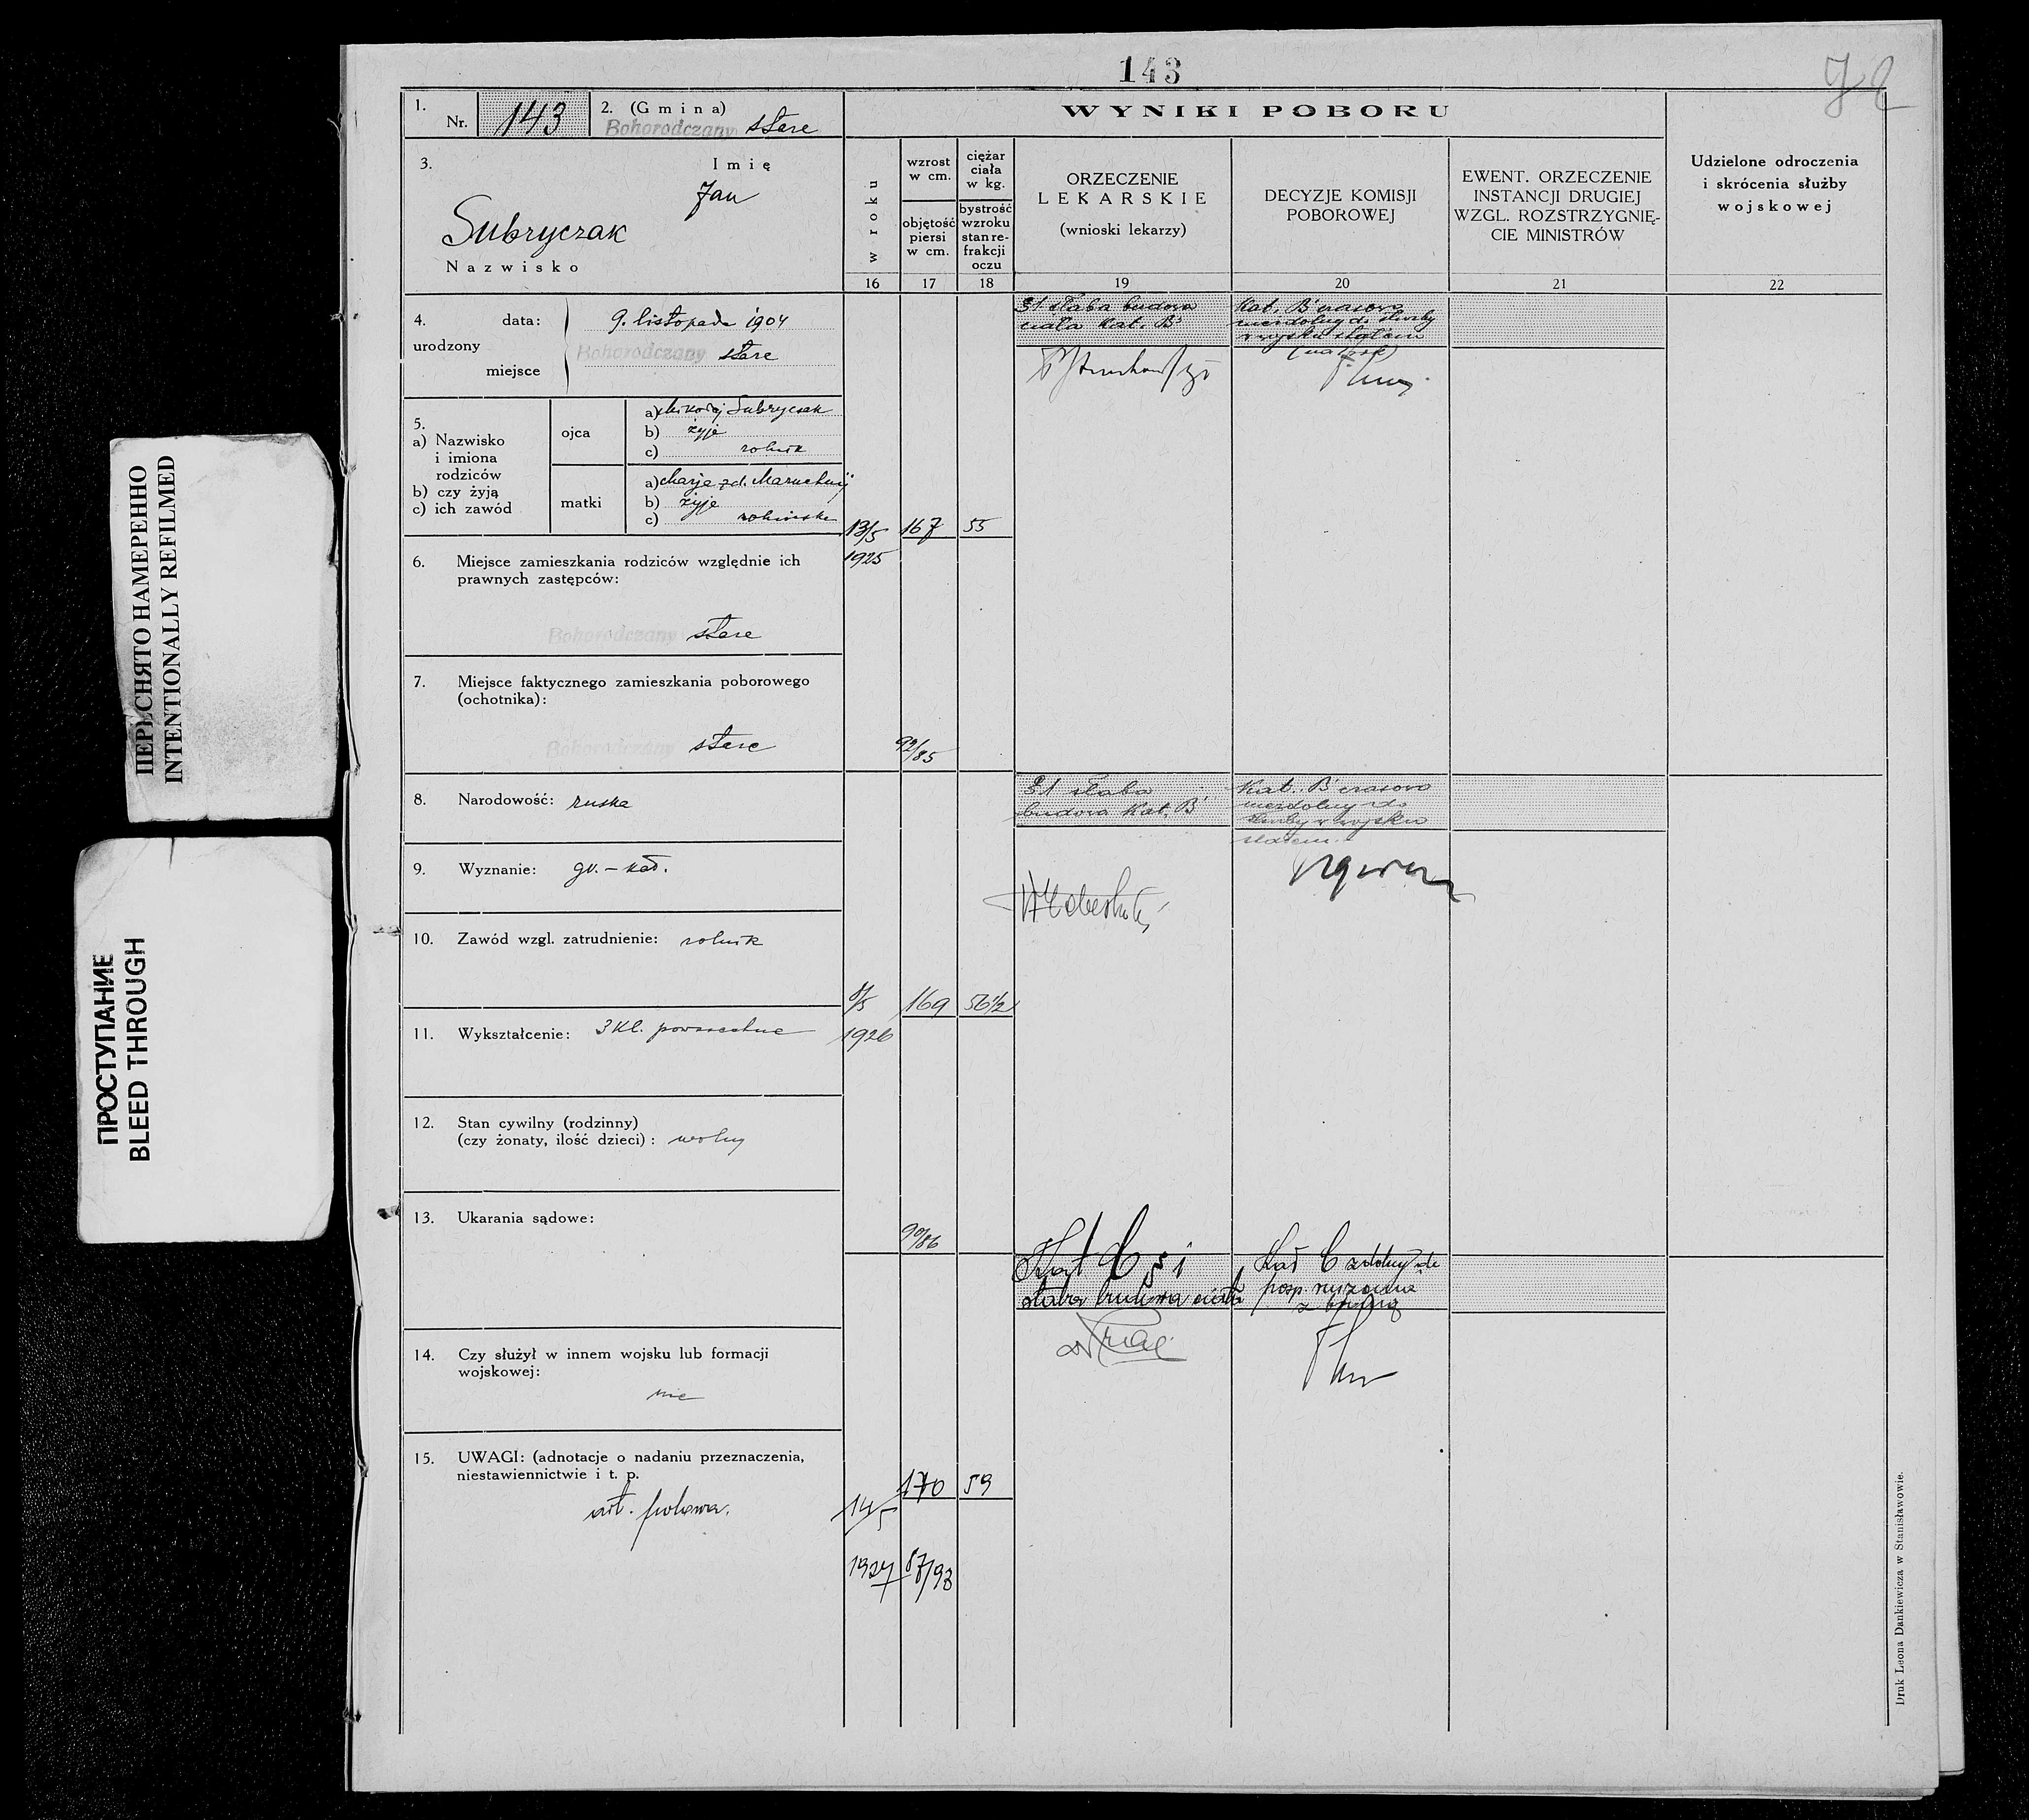 143
1.
Nr. 143
2. (Gmina)
Bohorodczany stare
WYNIKI POBORU
3.
Imię
Jan
Subryczak
Nazwisko
w roku
wzrost
w cm.
objętość
piersi
w cm.
ciężar
ciała
w kg.
bystrość
wzroku
stan re-
frakcji
oczu
ORZECZENIE
LEKARSKIE
(wnioski lekarzy)
DECYZJE KOMISJI
POBOROWEJ
EWENT. ORZECZENIE
INSTANCJI DRUGIEJ
WZGL. ROZSTRZYGNIĘ-
CIE MINISTRÓW
Udzielone odroczenia
i skrócenia służby
wojskowej
16 17 18 19 20 21 22
4.
urodzony
data: 9. listopada 1904
miejsce Bohorodczany stare
5.
a) Nazwisko
i imiona
rodziców
b) czy żyją
c) ich zawód
ojca
a) Mikołaj Subryczak
b) żyje
c) rolnik
matki
a) Marja zd.
b) żyje
c)
13/5
1925
167 55
92/85
§1 słaba budowa
ciała Kat. B
Kat. B czasowo
niezdolny do służby
w wojsku stałem
6. Miejsce zamieszkania rodziców względnie ich
prawnych zastępców:
Bohorodczany stare
7. Miejsce faktycznego zamieszkania poborowego
(ochotnika):
Bohorodczany stare
8. Narodowość: ruska
9. Wyznanie: gr.-kat.
10. Zawód wzgl. zatrudnienie: rolnik
11. Wykształcenie: 3 kl. powszechne
12. Stan cywilny (rodzinny)
(czy żonaty, ilość dzieci): wolny
13. Ukarania sądowe:
§1 słaba
budowa Kat. B
Kat. B czasowo
niezdolny do
służby w wojsku
stałem.
1926
169 56 1/2
90/86
14. Czy służył w innem wojsku lub formacji
wojskowej:
nie
15. UWAGI: (adnotacje o nadaniu przeznaczenia,
niestawiennictwie i t. p.
art. polowa.
Kat C §1
słaba budowa ciała
Kat C zdolny do
posp. ruszenia
z bronią
14/5
1927
170 59
87/93
Druk Leona Dankiewicza w Stanisławowie.
ПЕРЕСНЯТО НАМЕРЕННО
INTENTIONALLY REFILMED
ПРОСТУПАНИЕ
BLEED THROUGH